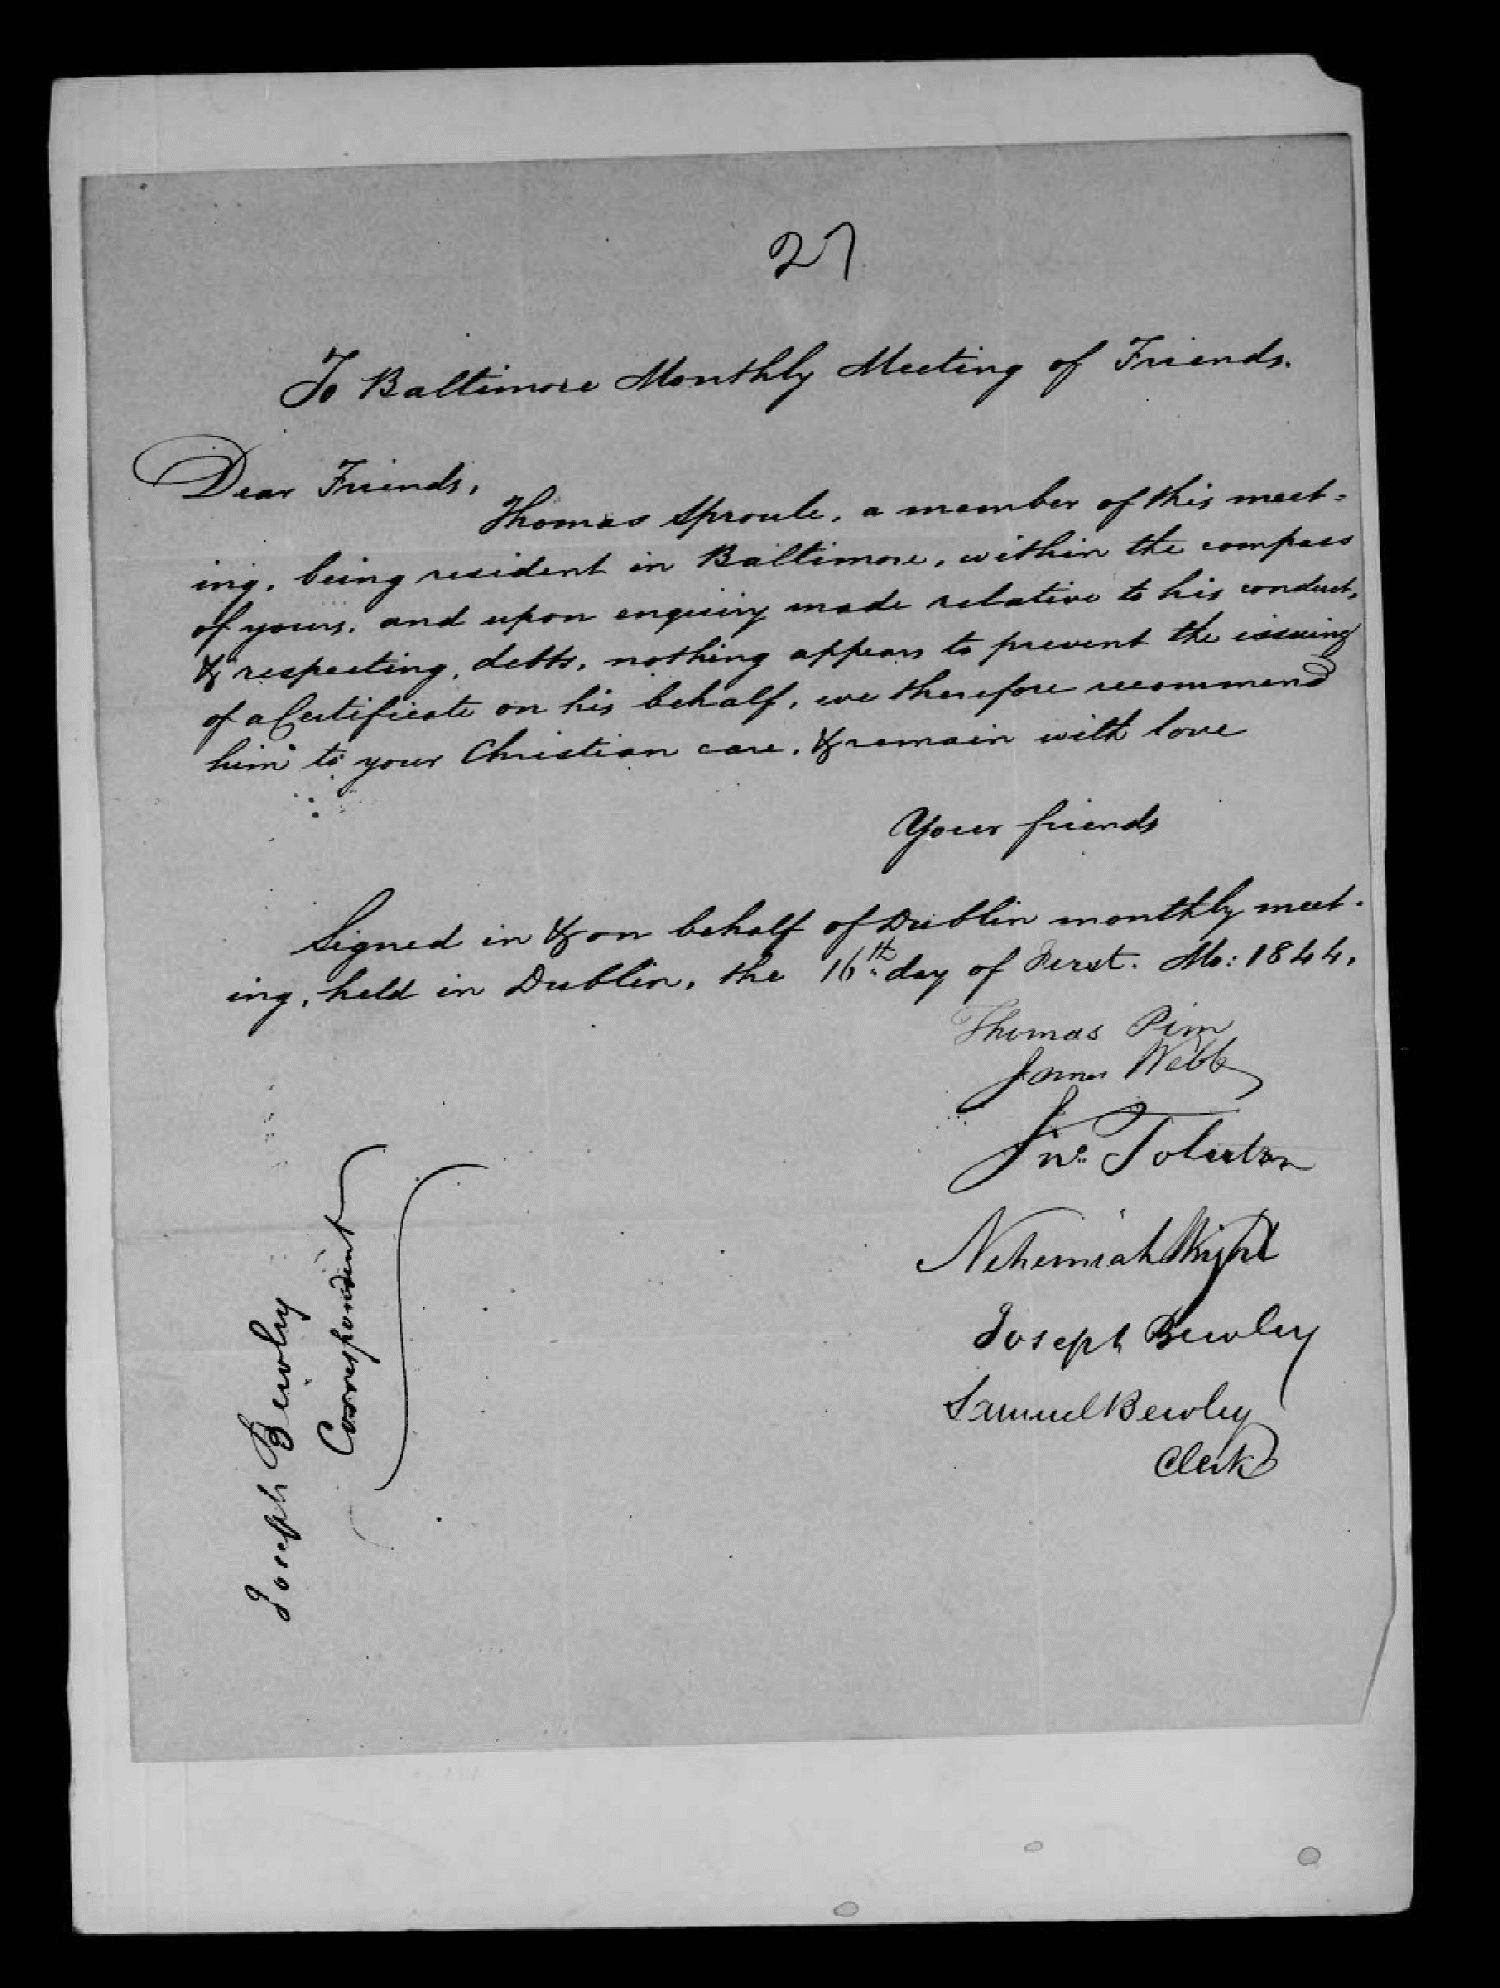 27
To Baltimore Monthly Meeting of Friends.
Dear Friends,
Thomas Sproule, a member of this meet-
ing, being resident in Baltimore, within the compass
of yours, and upon enquiry made relative to his conduct,
& respecting, debts, nothing appears to prevent the issuing
of a Certificate on his behalf, we therefore recommend
him to your Christian care, & remain with love
Your friends
Signed in & on behalf of Dublin monthly meet-
ing, held in Dublin, the 16th day of First. Mo: 1844.
Thomas Pim
James Webb
Jno. 
Nehemiah Wight
Joseph Bewley
Samuel Bewley
Clerk
Joseph Bewley
Correspondent